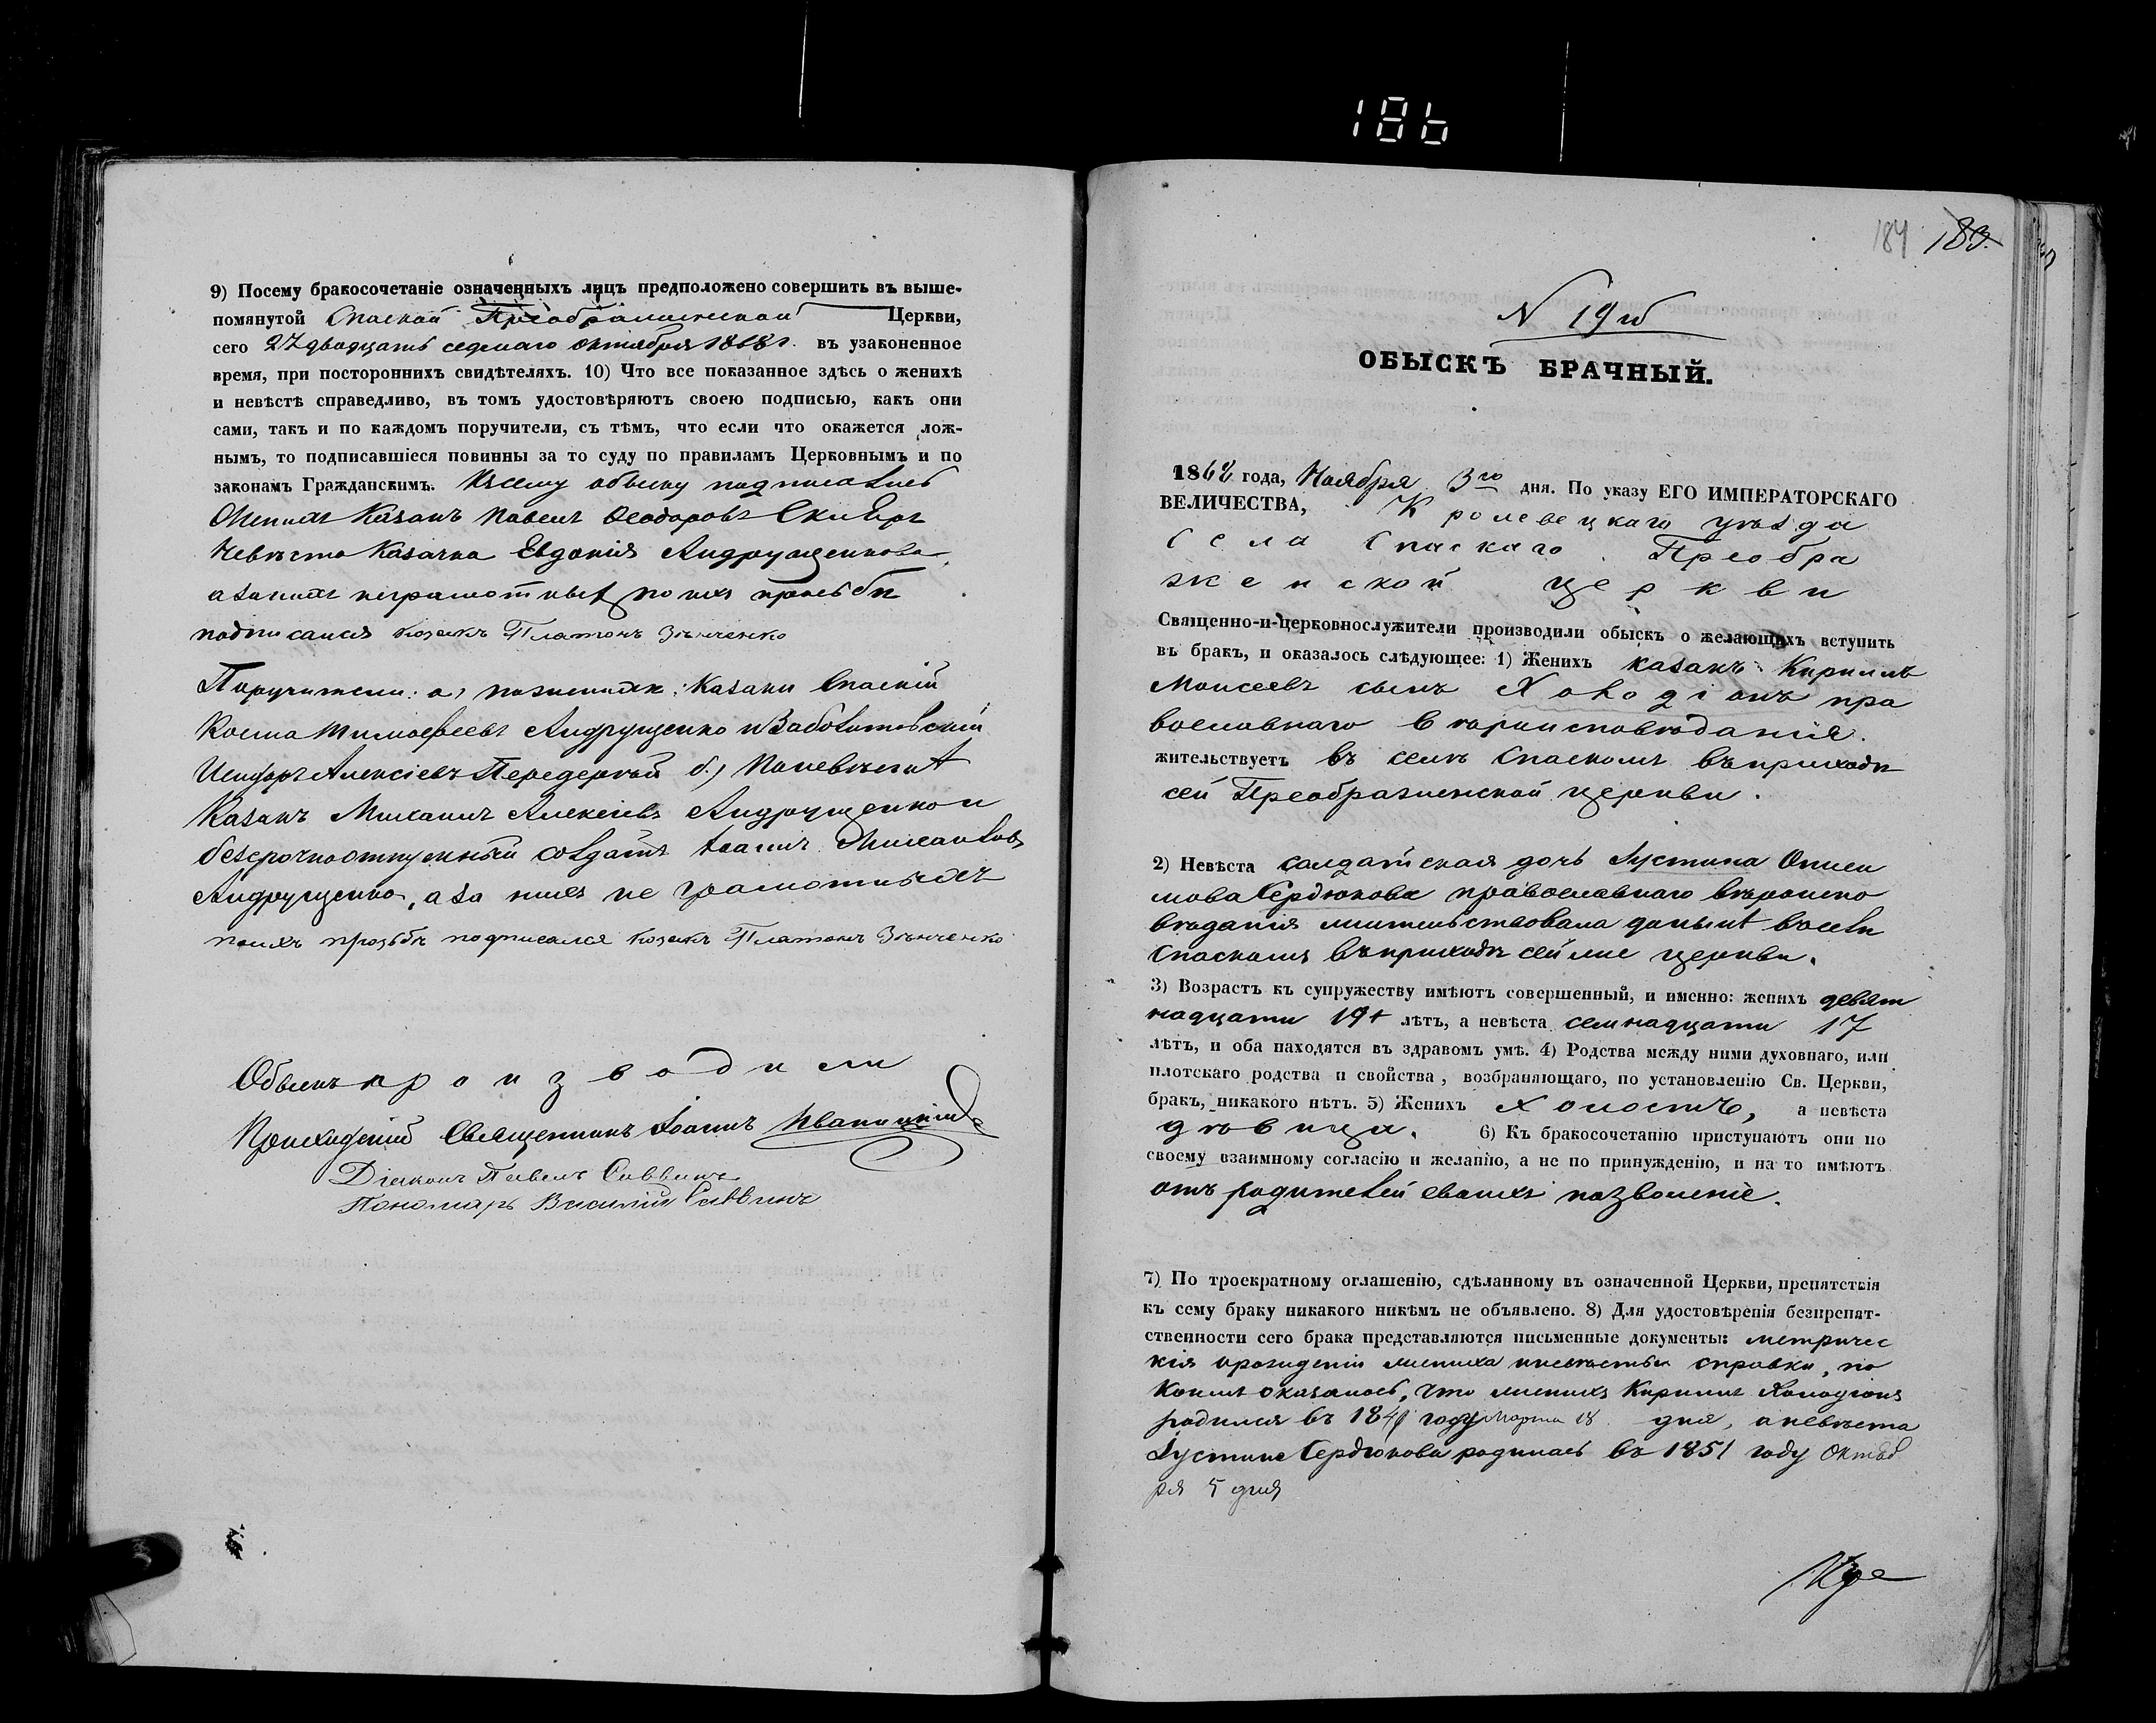 186
9) Посему бракосочетаніе означенныхъ лицъ предположено совершить въ выше-
помянутой Спаской Преображенской Церкви,
сего 27 двадцать седмаго октября 1868 г. въ узаконенное
время, при постороннихъ свидѣтеляхъ. 10) Что все показанное здѣсь о женихѣ
и невѣстѣ справедливо, въ томъ удостовѣряютъ своею подписью, какъ они
сами, такъ и по каждомъ поручители, съ тѣмъ, что если что окажется лож-
нымъ, то подписавшіеся повинны за то суду по правиламъ Церковнымъ и по
законамъ Гражданскимъ. Къ сему обыску подписались
Женихъ Казакъ Павелъ Феодоровъ
Невѣста Казачка Евдокія Андрущенкова
а за нихъ неграмотныхъ по ихъ прозьби
подписался козакъ Платонъ Зѣнченко
Поручители: а, по женихѣ: Казаки Спаскій
Косма Тимофеевъ Андрущенко и Заболотовскій
Алексіевъ Передерій б.) По невѣстѣ
Казакъ Михаилъ Алексіевъ Андрущенко и
безсрочноотпускный солдатъ Іоаннъ Михайловъ
Андрущенко, а за нихъ не грамотныхъ
по ихъ прозьбѣ подписался козакъ Платонъ Зѣнченко
Обыскъ производили
Приходскій Священникъ Іоаннъ Иваницкій
Діаконъ Павелъ Саввинъ
Пономарь Василій Саввинъ
184 183.
N 19й
ОБЫСКЪ БРАЧНЫЙ.
1868 года, Ноября 3го дня. По указу ЕГО ИМПЕРАТОРСКАГО
ВЕЛИЧЕСТВА, Кролевецкаго уѣзда
Села Спаскаго Преобра
женской церкви
Священно-и-церковнослужители производили обыскъ о желающихъ вступить
въ бракъ, и оказалось слѣдующее: 1) Женихъ казакъ Кириллъ
Моисеевъ сынъ Холодіонъ пра
вославнаго вѣроисповѣданія.
жительствуетъ въ селѣ Спаскомъ въ приходѣ
сей Преображенской церкви.
2) Невѣста салдатская дочь ІустинаОниси
мова Сердюкова православнаго вѣроиспо
вѣданія жительствовала донынѣ в селѣ
Спаскомъ въ приходѣ сей же церкви.
3) Возрастъ къ супружеству имѣютъ совершенный, и именно: женихъ девят
надцати 19т лѣтъ, а невѣста семнадцати 17
лѣтъ, и оба находятся въ здравомъ умѣ. 4) Родства между ними духовнаго, или
плотскаго родства и свойства, возбраняющаго, по установленію Св. Церкви,
бракъ, никакого нѣтъ. 5) Женихъ холостъ, а невѣста
дѣвица. 6) Къ бракосочетанію приступаютъ они по
своему взаимному согласію и желанію, а не по принужденію, и на то имѣютъ
отъ родителей своихъ позволеніе.
7) По троекратному оглашенію, сдѣланному въ означенной Церкви, препятствія
къ сему браку никакого никѣмъ не объявлено. 8) Для удостовѣренія безпрепят-
ственности сего брака представляются письменные документы: метричес
кія о рожденіи жениха и невѣсты справки, по
коимъ оказалось, что женихъ Кириллъ Холодіонъ
родился въ году Марта 18 дня, а невѣста
Іустина Сердюкова родилась въ 1851 году Октяб
ря 5 дня